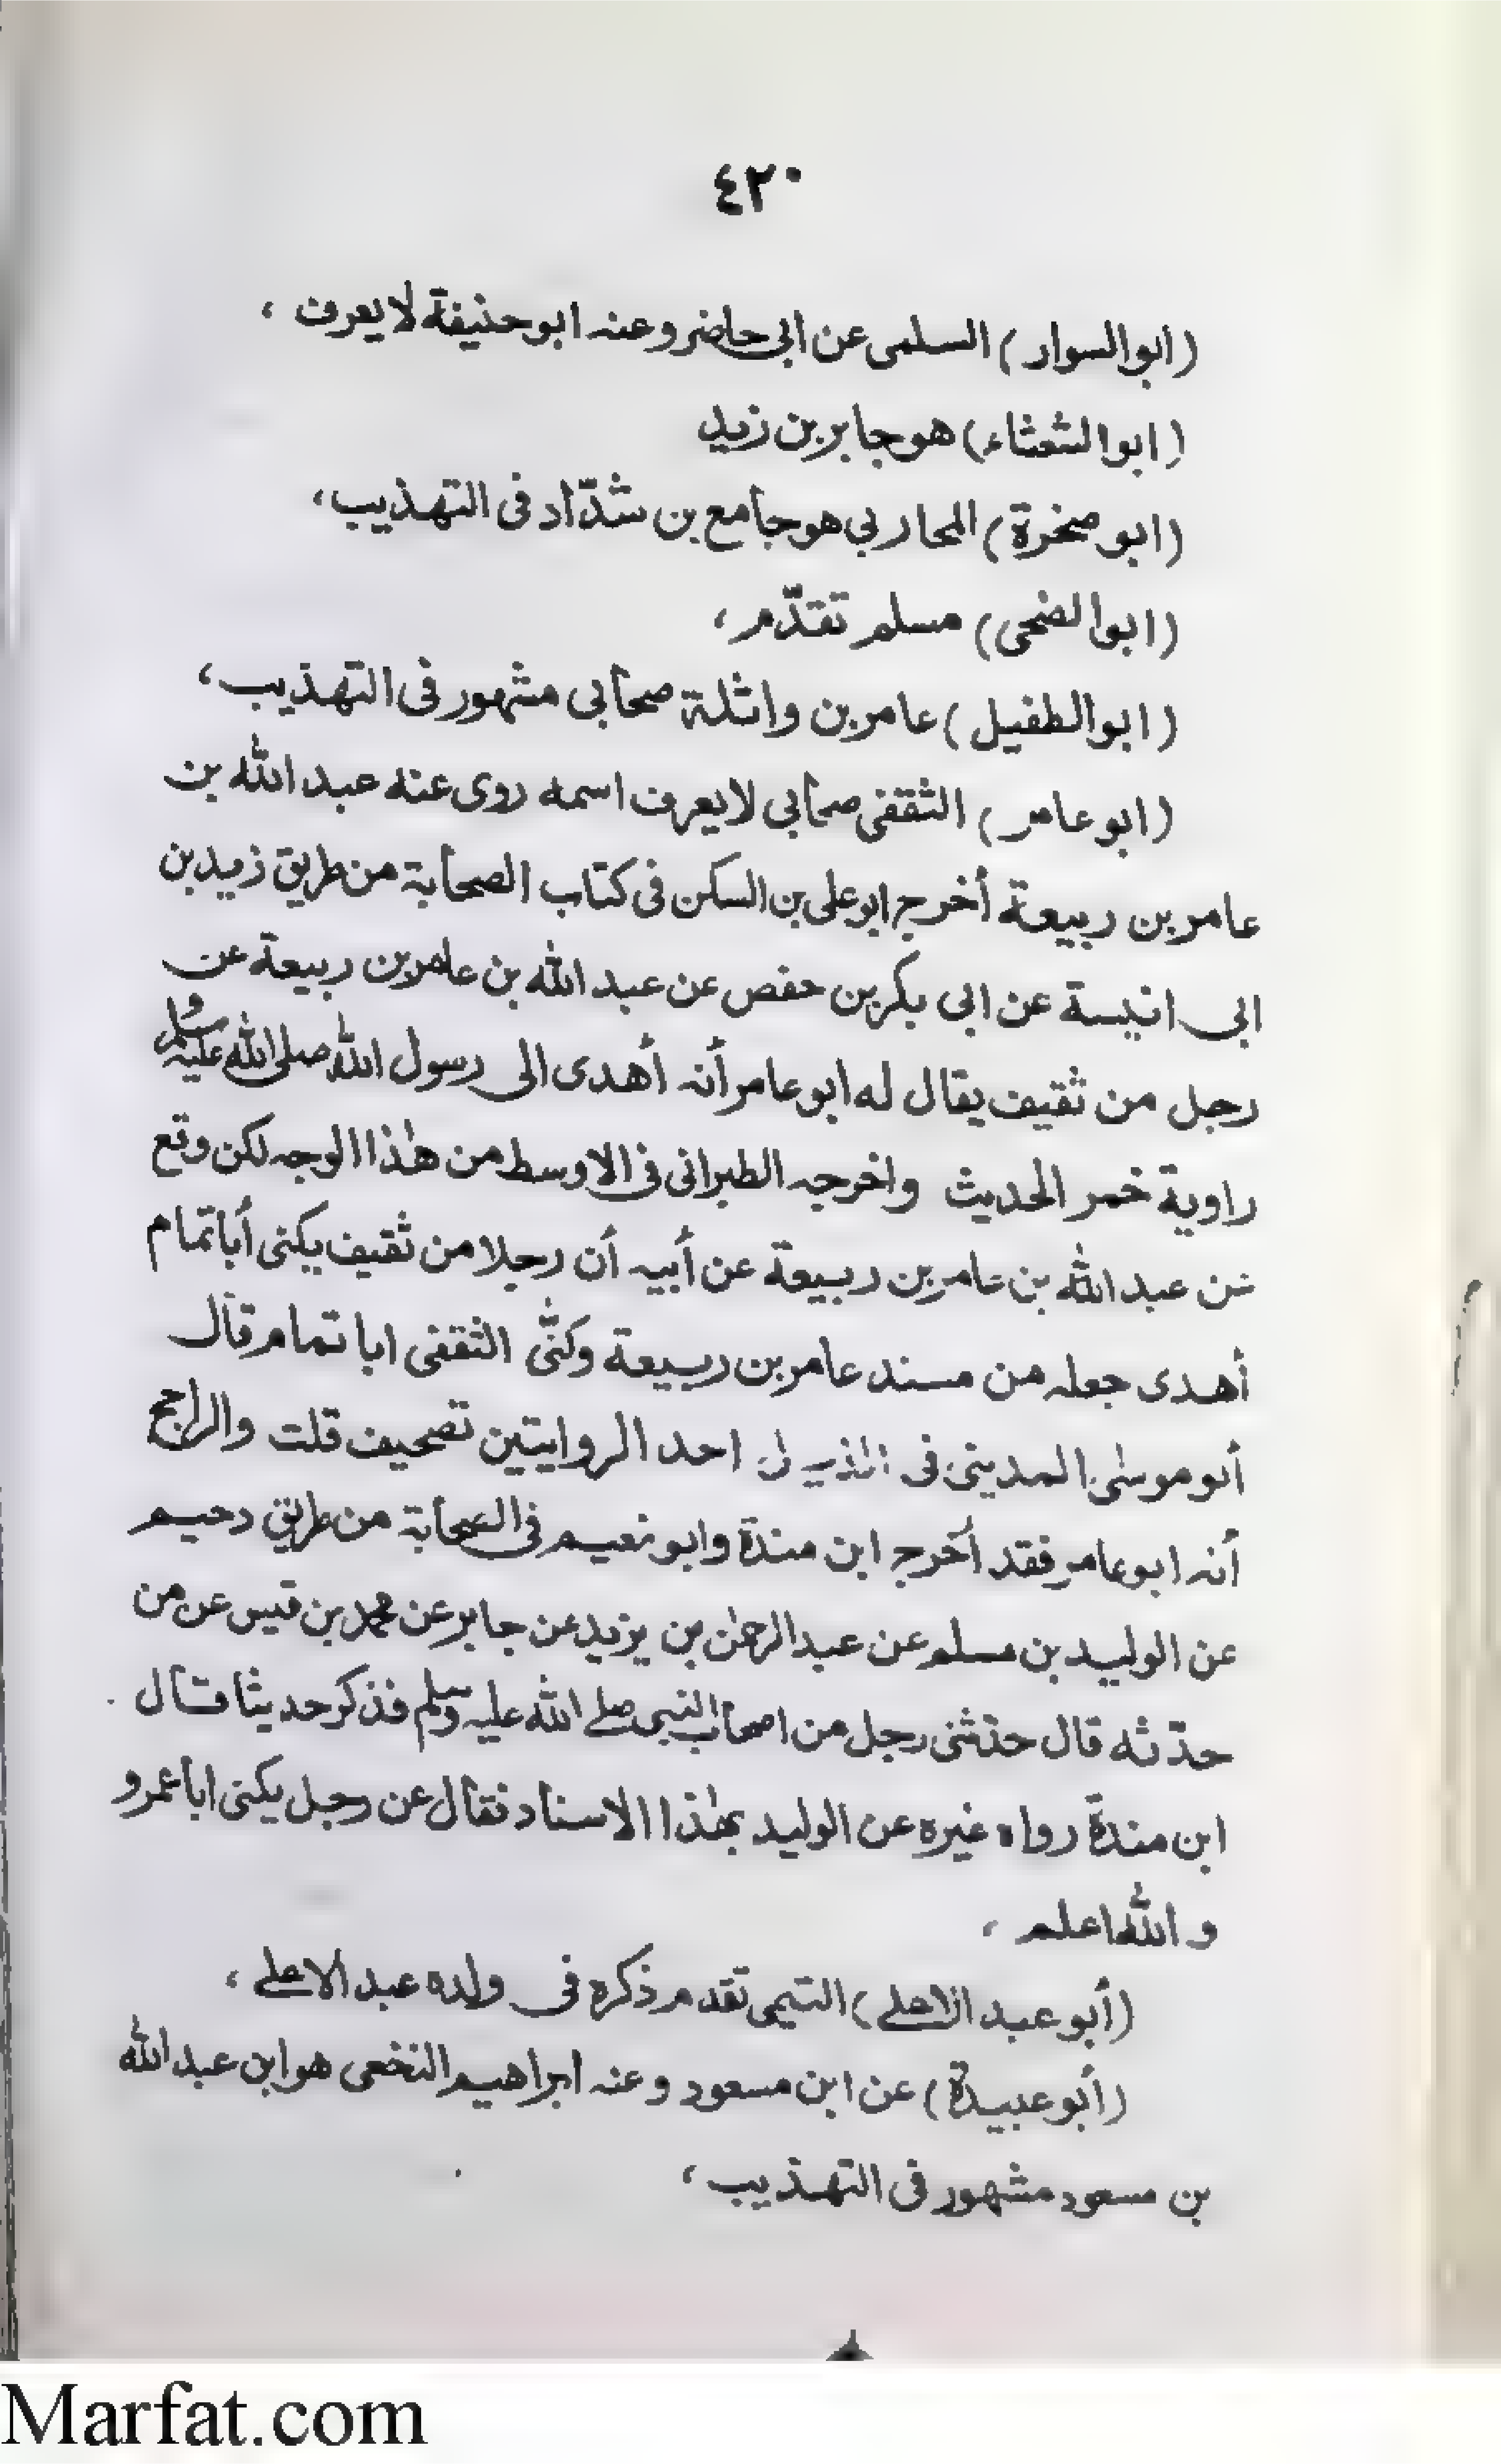 ٤٢٠
(ابوالسوار) السلمی عن ابی حاضر وعنہ ابو حنیفة لا یعرف ،
(ابوالشعثاء) هو جابر بن زید
(ابو صخرة) المحاربی هو جامع بن شدّاد فی التهذیب ،
(ابوالضحی) مسلم تقدّم ،
(ابوالطفیل) عامر بن واثلة صحابی مشهور فی التهذیب ،
(ابو عامر) الثقفی صحابی لا یعرف اسمه روی عنه عبد الله بن
عامر بن ربیعة أخرج ابو علی بن السکن فی کتاب الصحابة من طریق زید بن
ابی انیسة عن ابی بکر بن حفص عن عبد الله بن عامر بن ربیعة عن
رجل من ثقیف یقال له ابو عامر أنه أهدی الی رسول الله صلی الله علیه وسلم
راویة خمر الحدیث واخرجه الطبرانی فی الاوسط من هٰذا الوجه لکن وقع
عن عبد الله بن عامر بن ربیعة عن أبیه أن رجلا من ثقیف یکنی أبا تمام
أهدی جعله من مسند عامر بن ربیعة وکنّی الثقفی ابا تمام قال
أبو موسٰی المدینی فی احد الروایتین تصحیف قلت والراجح
أنه ابو عامر فقد أخرج ابن مندة وابو نعیم فی الصحابة من طریق دحیم
عن الولید بن مسلم عن عبد الرحمٰن بن یزید عن جابر عن محمد بن قیس عن من
حدّثه قال حدّثنی رجل من اصحاب النبی صلے الله علیه وسلم فذکر حدیثا قال
ابن مندة رواه غیره عن الولید بهٰذا الاسناد فقال عن رجل یکنی ابا عمرو
والله اعلم ،
(أبو عبد الاعلے) التیمی تقدم ذکره فی ولده عبد الاعلے ،
(أبو عبیدة) عن ابن مسعود وعنه ابراهیم النخعی هو ابن عبد الله
بن مسعود مشهور فی التهذیب ،
Marfat.com